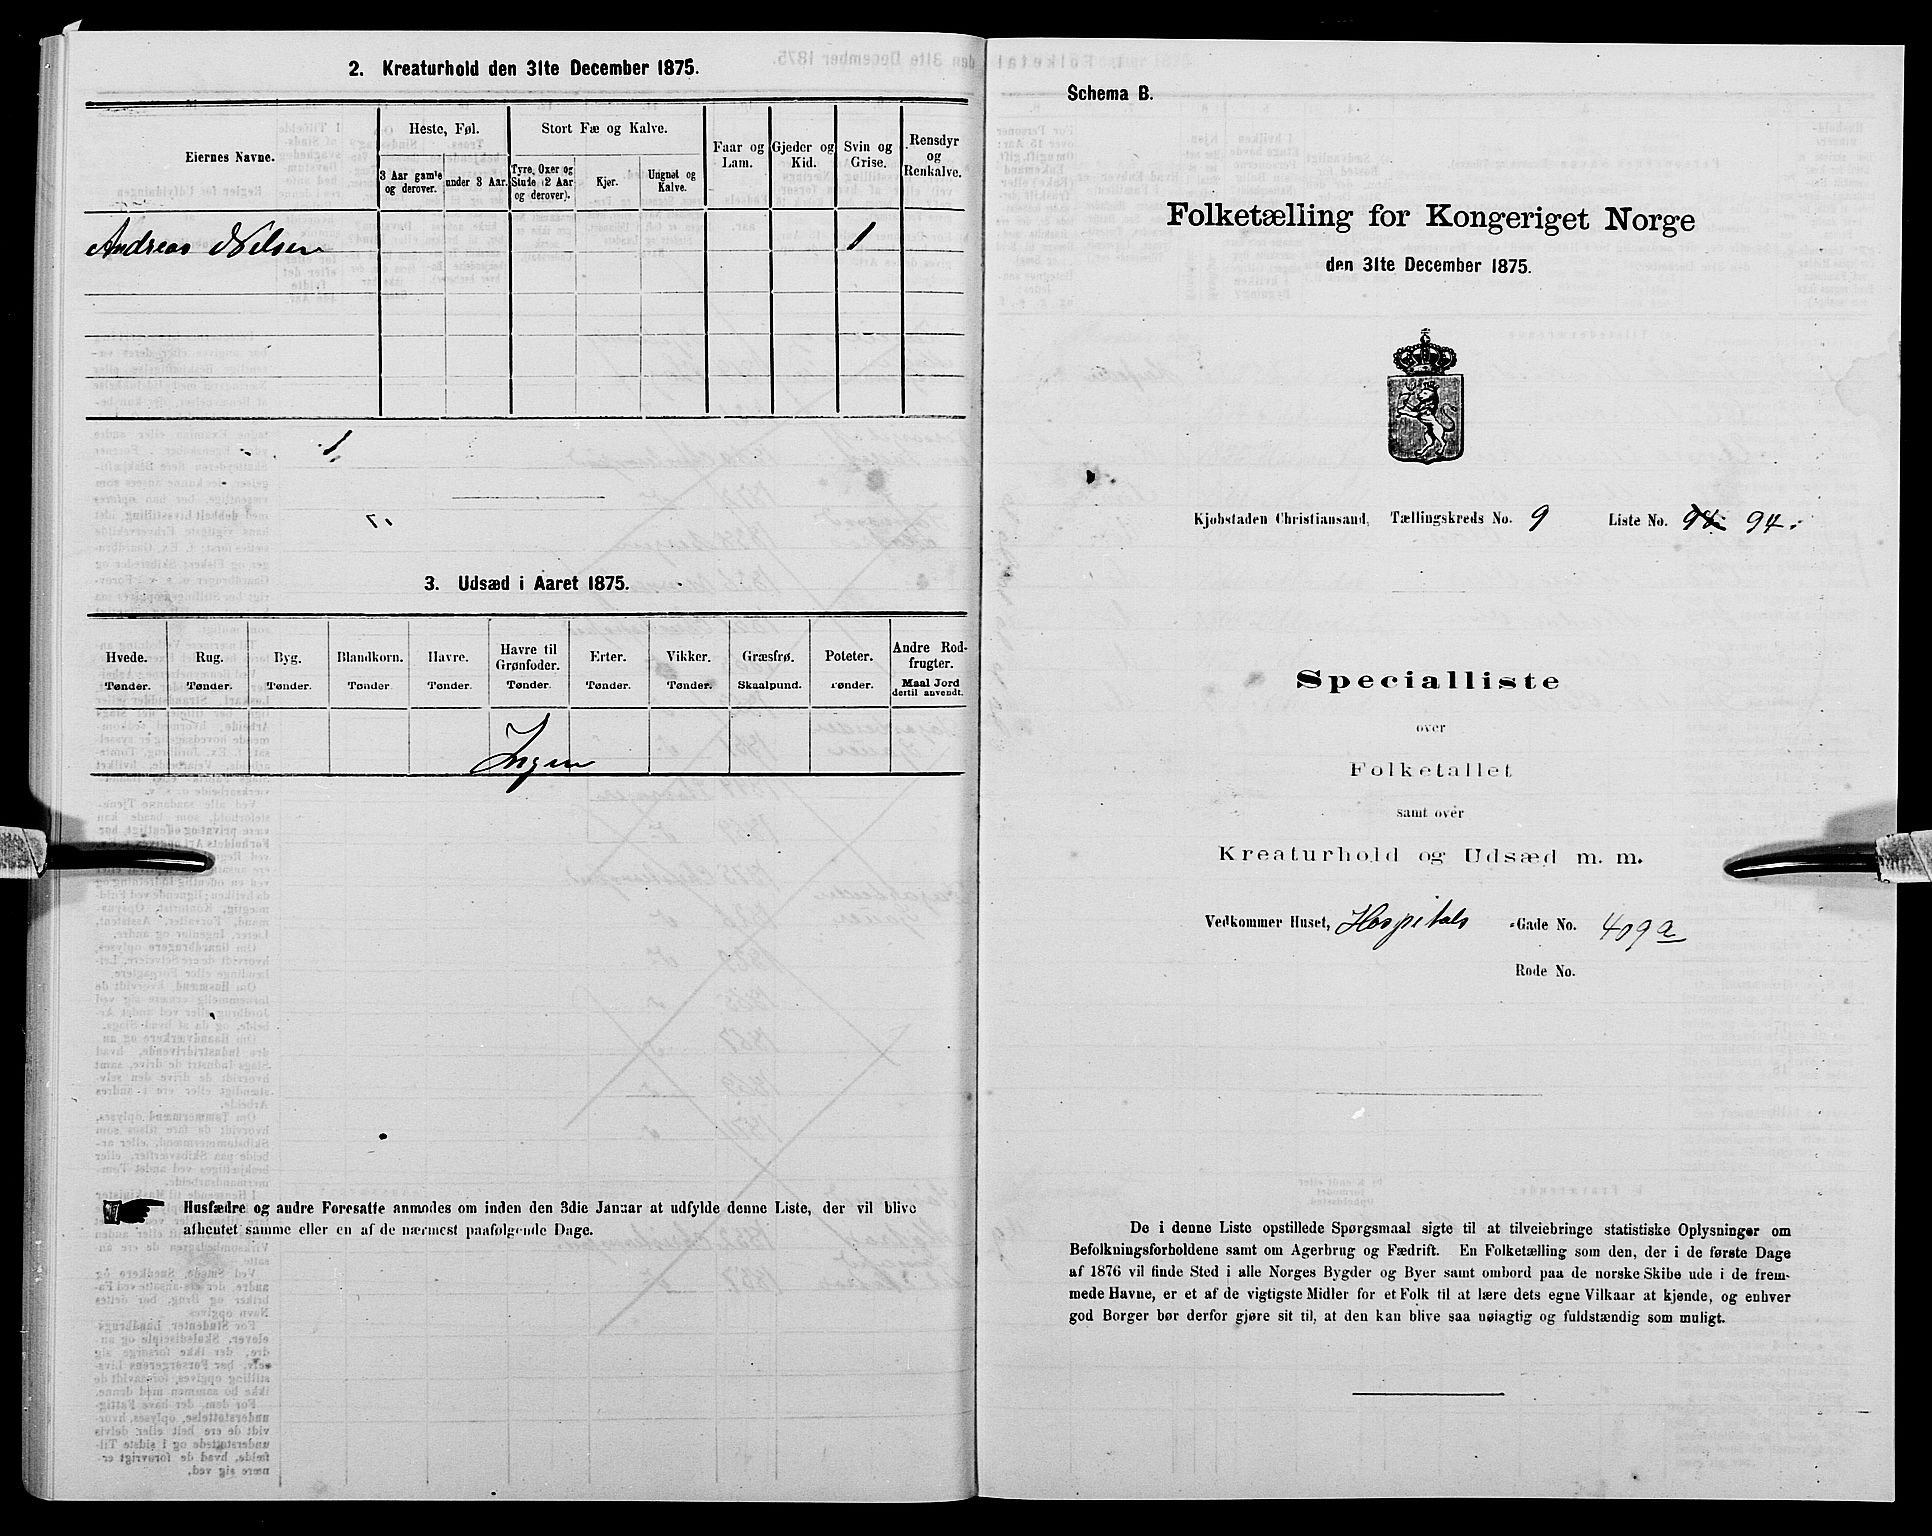 2. Kreaturhold den 31te December 1875.
Eiernes Navne.
Heste, Føl.
3 Aar gamle og derover.
under 3 Aar.
Stort Fæ og Kalve.
Tyre, Oxer og Stude (2 Aar og derover).
Kjør.
Ungnøt og Kalve.
Faar og Lam.
Gjeder og Kid.
Svin og Grise.
Rensdyr og Renkalve.
Andreas Nilsen 1
3. Udsæd i Aaret 1875.
Hvede. Tønder.
Rug. Tønder.
Byg. Tønder.
Blandkorn. Tønder
Havre. Tønder.
Havre til Grønfoder. Tønder.
Erter. Tønder.
Vikker. Tønder.
Græsfrø. Skaalpund.
Poteter. Tønder.
Andre Rodfrugter. Maal Jord dertil anvendt.
Ingen
Husfædre og andre Foresatte anmodes om inden den 3die Januar at udfylde denne Liste, der vil blive
afhentet samme eller en af de nærmest paafølgende Dage.
Schema B.
Folketælling for Kongeriget Norge
den 31te December 1875.
Kjøbstaden Christiansand, Tællingskreds No. 9 Liste No. 94.
Specialliste
over
Folketallet
samt over
Kreaturhold og Udsæd m. m.
Vedkommer Huset, Hospitals -Gade No. 409a
Rode No.
De i denne Liste opstillede Spørgsmaal sigte til at tilveiebringe statistiske Oplysninger om
Befolkningsforholdene samt om Agerbrug og Fædrift. En Folketælling som den, der i de første Dage
af 1876 vil finde Sted i alle Norges Bygder og Byer samt ombord paa de norske Skibe ude i de frem-
mede Havne, er et af de vigtigste Midler for et Folk til at lære dets egne Vilkaar at kjende, og enhver
god Borger bør derfor gjøre sit til, at den kan blive saa nøiagtig og fuldstændig som muligt.